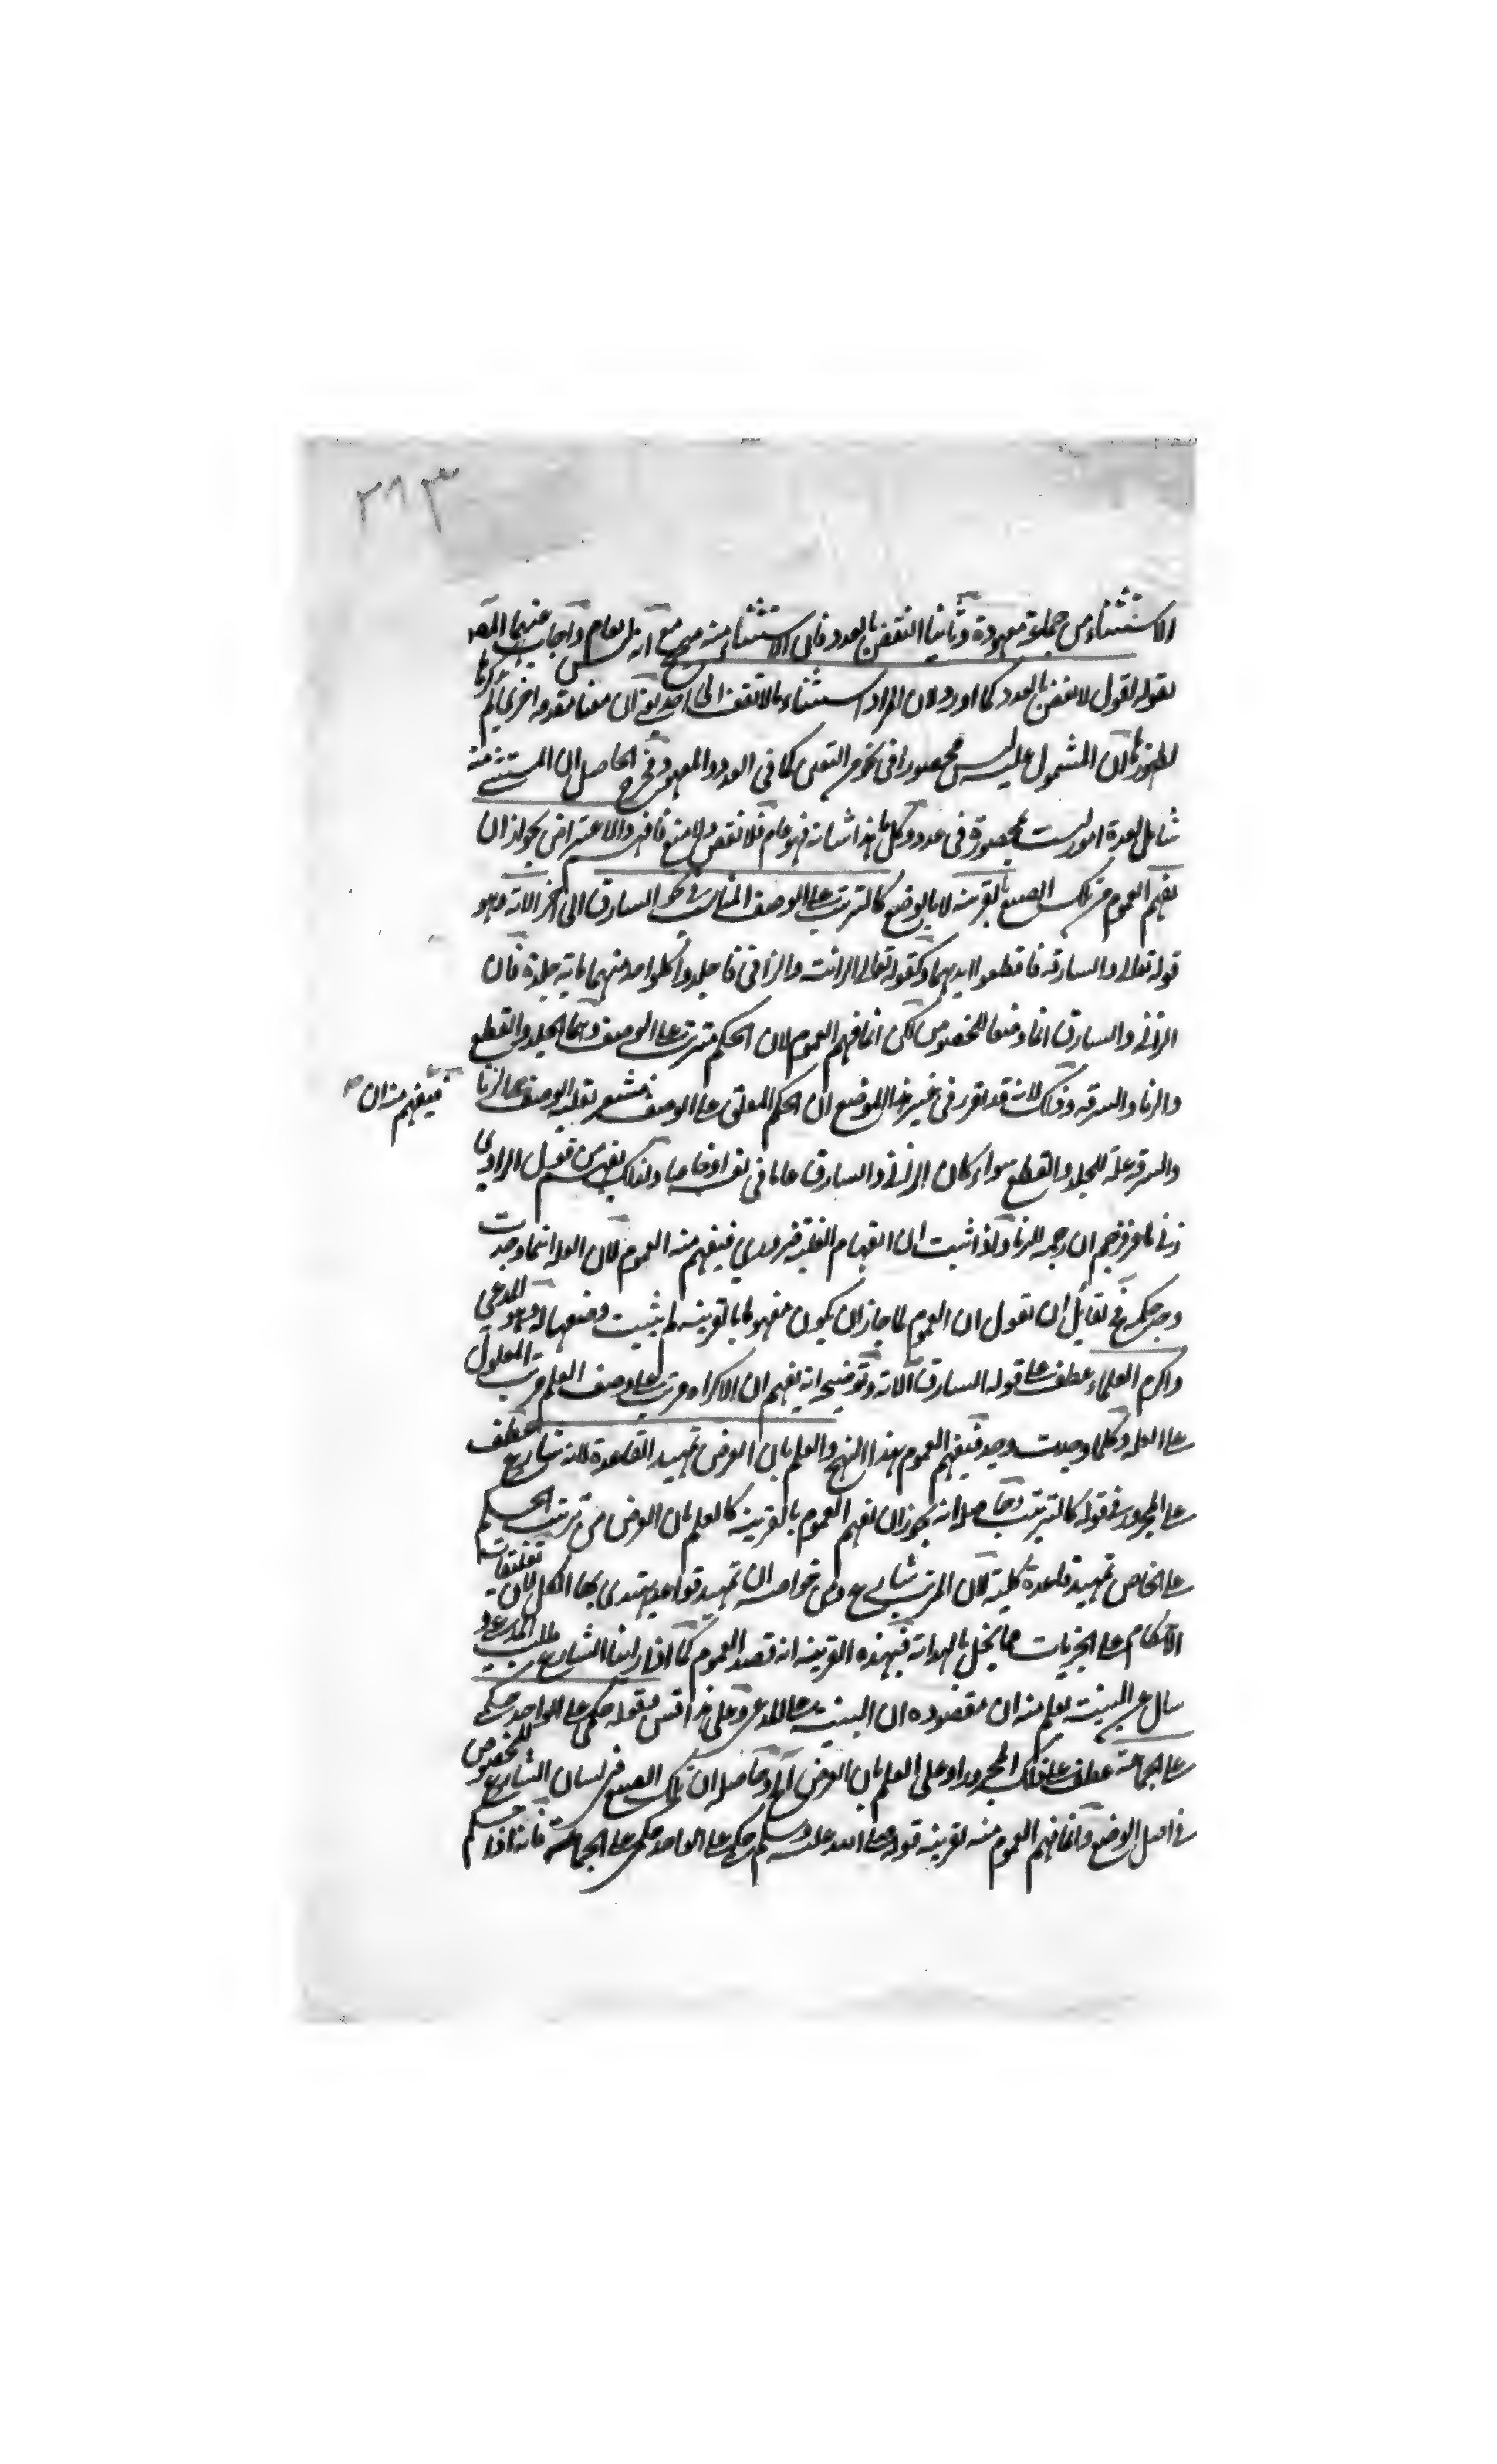 ٣٨٣
الاستثناء من جملة معهودة وثانيا النقض بالعدد فان الاستثناء منه صحيح مع انه ليس بعام واجاب عنهما المص
بقوله لا نقض بالعدد كما اورد لان المراد استثناء ما لا تقف الى حد يعني ان هنا مقدمة اخرى لم يذكرها
لظهورها ان المشمول عليه ليس محصورا في نحو من التعدى كما في العدد والمعهود فخرج الحاصل ان المستثنى منه
شامل لعدة امور ليست محصورة في عدد وكل ما هذا شانه فهو عام فلا نقض ولا منع فافهم والاعتراض بجواز ان
يفهم العموم من تلك الصيغ بالقرينة لا بالوضع كالترتيب على الوصف المناسب في نحو السارق الى اخر الاية وهو
قوله تعالى والسارقة فاقطعوا ايديهما وكقوله تعالى الزانية والزاني فاجلدوا كل واحد منهما ماية جلدة فان
الزاني والسارق انما وضعا للخصوص لكن انما فهم العموم لان الحكم مترتب على الوصف وهما الجلد والقطع
والزنا والسرقة وذلك لانه قد تقرر في غير هذا الموضع ان الحكم المعلق على الوصف مشعر بعلية الوصف
فيفهم منه ان الزنا
والسرقة علة للجلد والقطع سواء كان الزاني والسارق عاما في نفسه او خاصا ولذلك يفهم من قول الراوي
زنى ماعز فرجم ان رجمه للزنا واذا ثبت ان انفهام العلية ضروري فيفهم منه العموم لان العلة اينما وجدت
وجد حكمه فلقائل ان يقول ان العموم لما جاز ان يكون مفهوما بالقرينة لم يثبت وضعها له وهو المدعى
واكرم العلماء عطف على قوله السارق الاية وتوضيحه انه يفهم ان الاكرام مرتب على وصف العلم ترتب المعلول
على العلة وكلما وجدت وجد فيفهم العموم بهذا النهج والعلم بان الغرض تمهيد القاعدة لانه شارع عطف
على المجرور في قوله كالترتيب وحاصله انه يجوز ان يفهم العموم بالقرينة كالعلم بان الغرض من ترتيب الحكم
على الخاص تمهيد قاعدة كلية لان المرتب شارع ومن خواصه ان تمهيد قواعد يهتدى بها الكل لان تعليقات
الاحكام على الجزئيات مما يخل بالهداية فبهذه القرينة انه قصد العموم كما اذا راينا الشارع طلب المدعى و
سال عن البينة يعلم منه ان مقصوده ان البينة على المدعى وعلى هذا قس وقوله حكمي على الواحد حكمي
على الجماعة عطف على ذلك المجرور او على العلم بان الغرض الخ وحاصله ان تلك الصيغ في لسان الشارع للخصوص
في اصل الوضع وانما فهم العموم منه بقرينة قوله صلى الله عليه وسلم حكمي على الواحد حكمي على الجماعة فانه اذا حكم